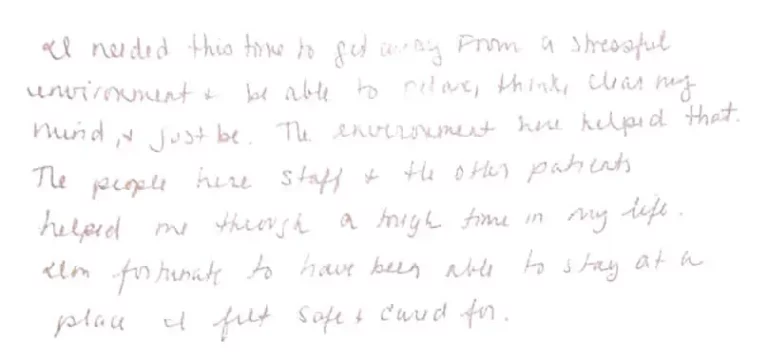 I needed this time to get away from a stressful
environment & be able to relax, think, clear my
mind, & just be. The environment here helped that.
The people here staff & the other patients
helped me through a tough time in my life.
I'm fortunate to have been able to stay at a
place I felt safe & cared for.